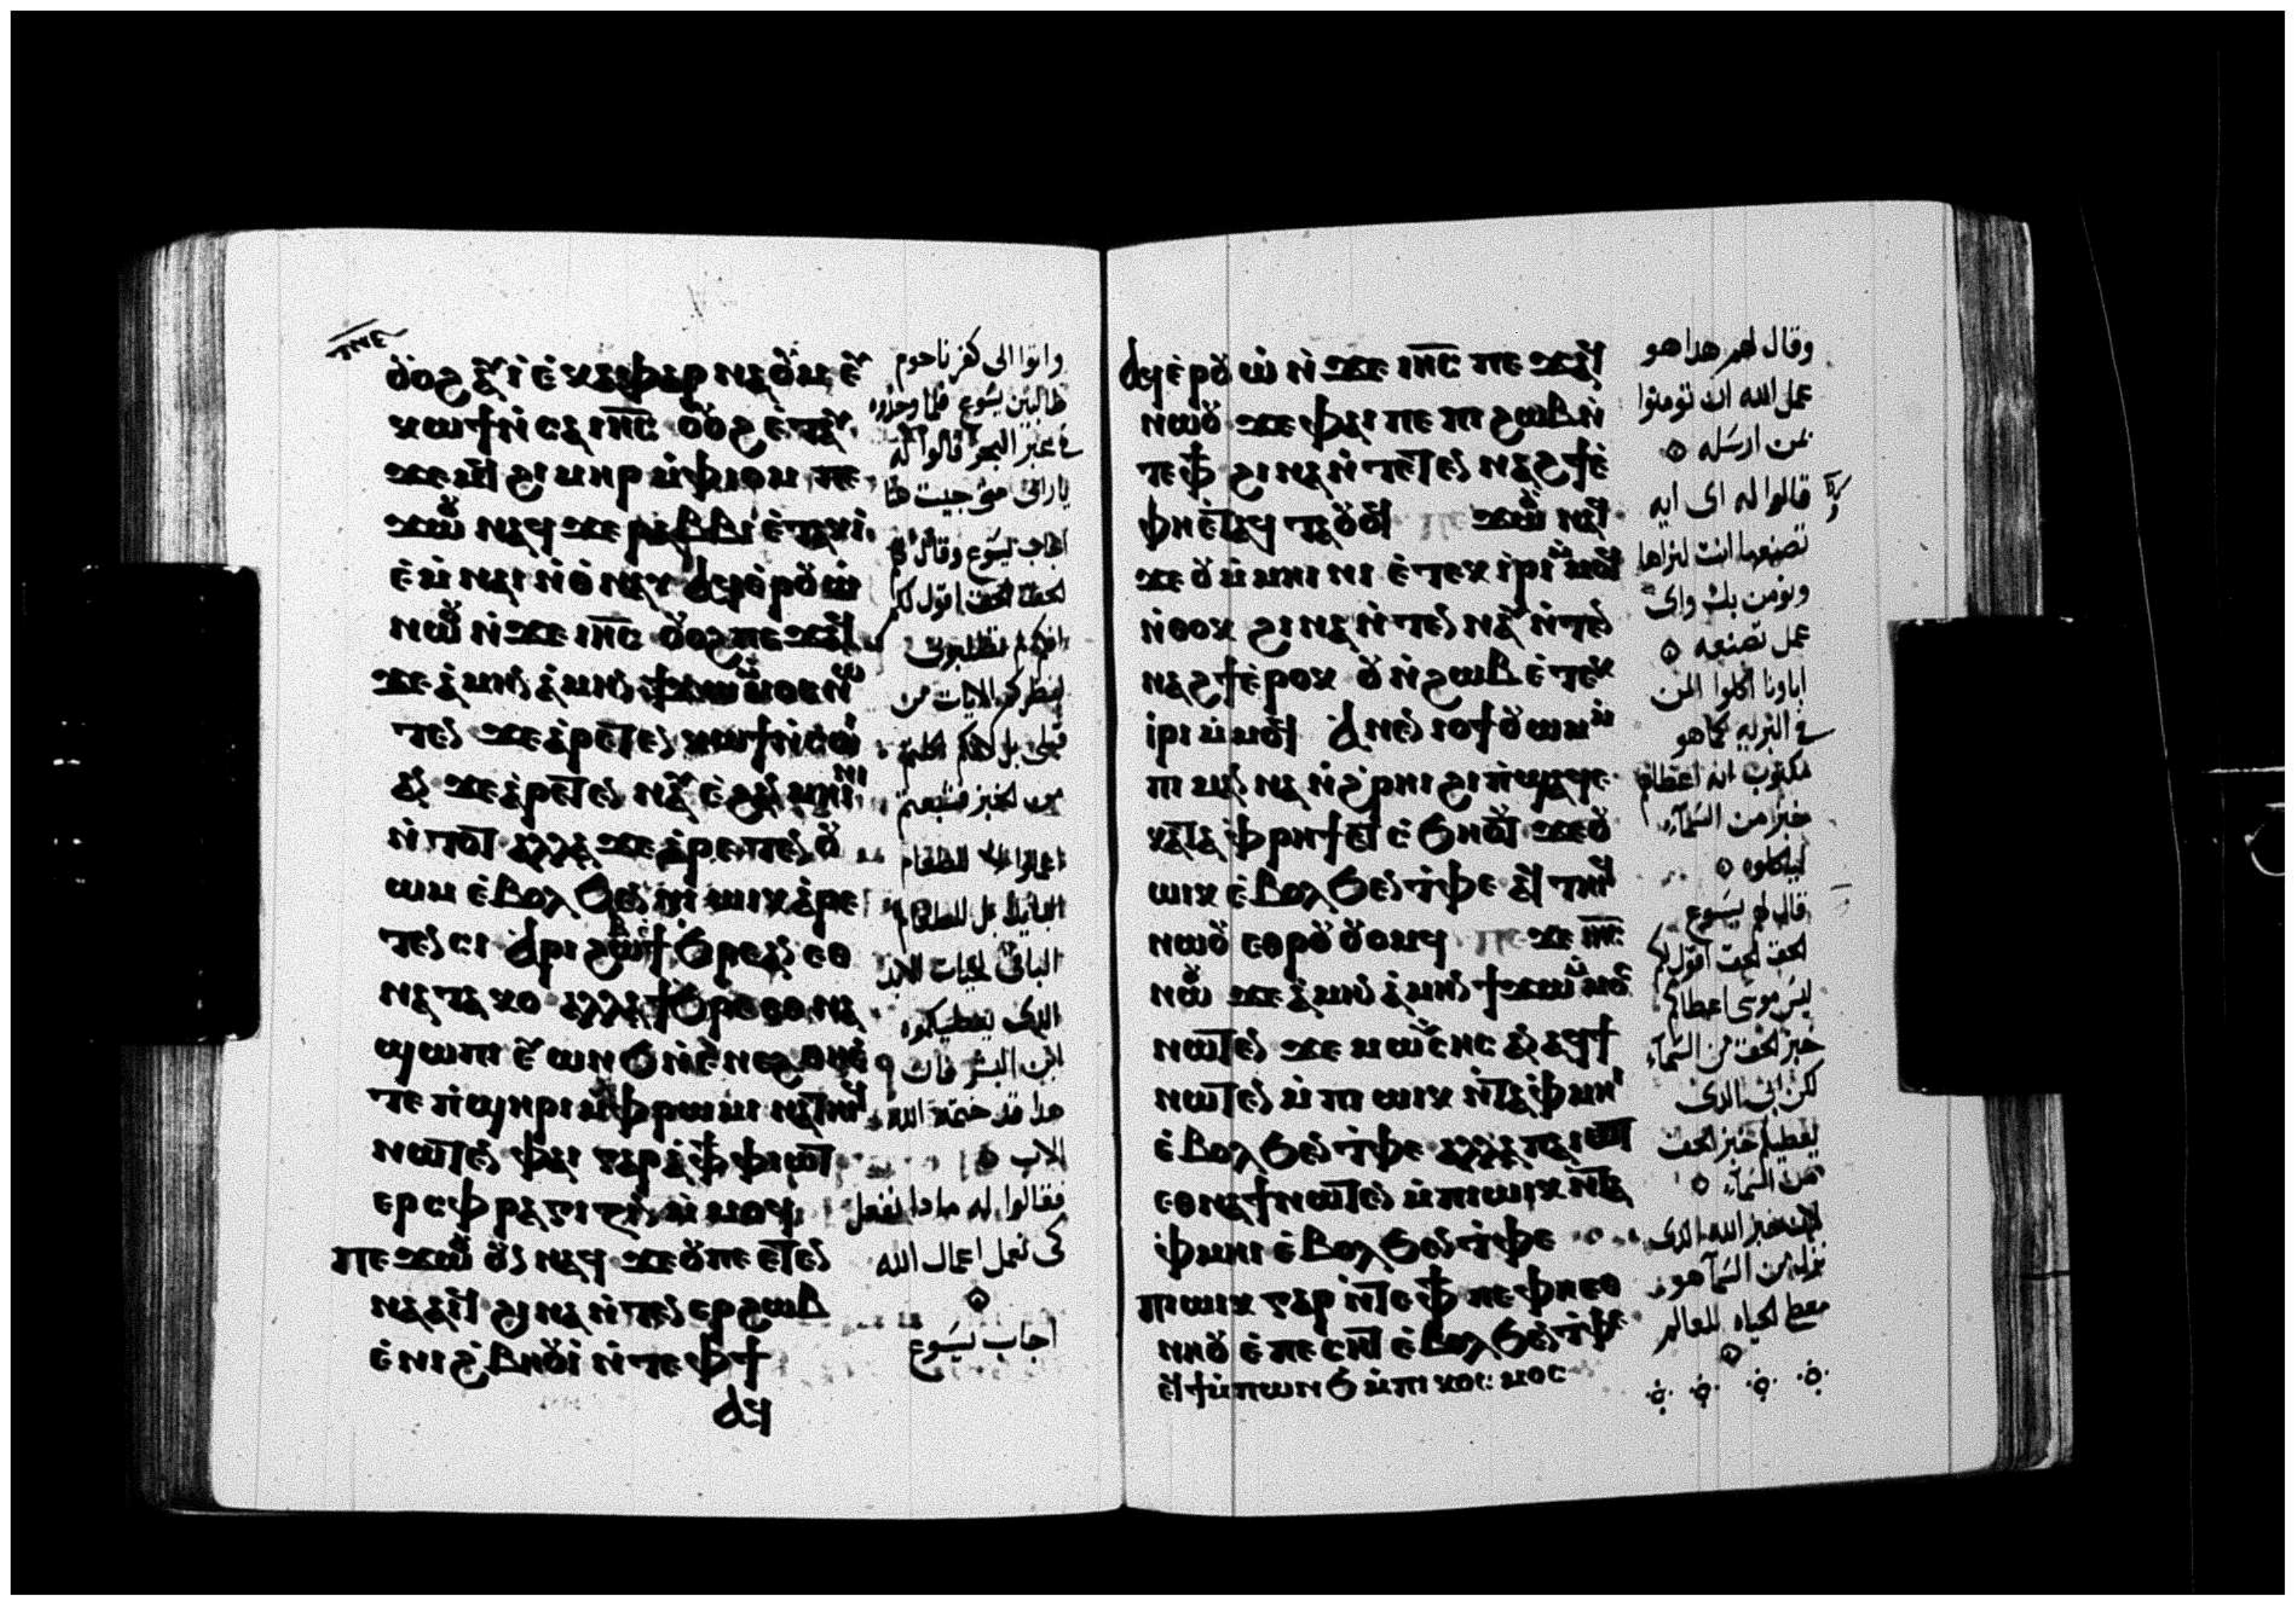 ⲟⲩⲟϩ ⲁⲩⲓ̀ ⲉ̀ⲕⲁⲫⲁⲣⲛⲁⲟⲩⲙ ⲉⲩ
ⲕⲱϯ ⲛ̀ⲥⲁ ⲓⲏ̅ⲥ̅ ⲟⲩⲟϩ ⲉ̀ⲧⲁⲩ
ϫⲉⲙϥ ϩⲓⲙⲏⲣ ⲙ̀ⲫⲓⲟⲙ ⲡⲉ
ϫⲱⲟⲩ ⲛⲁϥ ϫⲉ ⲣⲁⲃⲃⲓ ⲉ̀ⲧⲁⲕⲓ̀
ⲉ̀ⲙⲛⲁⲓ ⲛ̀ⲑⲛⲁⲩ ⲁϥⲉ̀ⲣⲟⲩⲱ̀
ⲛⲱⲟⲩ ⲛ̀ϫⲉ ⲓⲏ̅ⲥ̅ ⲟⲩⲟϩ ⲡⲉϫⲁϥ
ϫⲉ ⲁ̀ⲙⲏⲛ ⲁ̀ⲙⲏⲛ ϯϫⲱⲙⲙⲟⲥ ⲛⲱ
ⲧⲉⲛ ϫⲉ ⲁ̀ⲣⲉⲧⲉⲛ ⲕⲱϯ ⲛ̀ⲥⲱⲓ
ⲁⲛ ϫⲉ ⲁ̀ⲣⲉⲧⲉⲛ ⲛⲁⲩ ⲉ̀ϩⲁⲛ ⲙⲏⲓⲛⲓ
ⲛ̀ⲧⲟⲧ ⲁⲗⲗⲁ ϫⲉ ⲁ̀ⲣⲉⲧⲉⲛ ⲟⲩ
ⲱⲙ ⲉ̀ⲃⲟⲗ ϧⲉⲛ ⲛⲓ ⲱⲓⲕ ⲁ̀ⲣⲉ
ⲧⲉⲛ ⲥⲓ ⲁⲣⲓϩⲱⲃ ϯϧⲣⲉ ⲁⲛ ⲉⲑ
ⲛⲁⲧⲁⲕⲟ ⲁⲗⲗⲁ ϯϧⲣⲉ ⲉⲑⲛⲁ
ϣⲱⲡⲓ ⲉⲩⲱⲛϧ ⲛ̀ⲉ̀ⲛⲉϩ ⲑⲏⲉ̀
ⲧⲉ ⲡ̀ϣⲏⲣⲓ ⲙ̀ⲫⲣⲱⲙⲓ ⲛⲁⲧⲏⲓⲥ
ⲛⲱⲧⲉⲛ ⲫⲁⲓ ⲅⲁⲣ ⲁ̀ ⲫϯ ⲫⲓⲱⲧ
ⲉⲣⲥⲫⲣⲁⲅⲓⲍⲓⲛ ⲙ̀ⲙⲟϥ
ⲡⲉϫⲱⲟⲩ ⲟⲩⲛ ⲛⲁϥ ϫⲉ ⲟⲩ ⲡⲉ ⲉⲧⲉⲛ
ⲛⲁⲁⲓϥ ϩⲓⲛⲁ ⲛ̀ⲧⲉⲛ ⲉⲣϩⲱⲃ
ⲉ̀ⲛⲓϩ̀ⲃⲏⲟⲩⲓ̀ ⲛ̀ⲧⲉ ⲫϯ
ⲁϥ
واتوا الى كفرناحوم
طالبين يسوع فلما وجدوه
في عبر البحر قالوا له
يارابى متى جيت هنا
اجاب يسوع وقال لهم
الحق الحق اقول لكم
من الخبز فشبعتم
الباقى لحيات الابد
ابن البشر فان
هدا قد ختمه الله
الاب
فقالوا له مادا نفعل
كى نعمل اعمال الله
اجاب يسوع
ⲁϥⲉ̀ⲣⲟⲩⲱ̀ ⲛ̀ϫⲉ ⲓⲏ̅ⲥ̅ ⲡⲉϫⲁϥ
ⲛⲱⲟⲩ ϫⲉ ⲫⲁⲓ ⲡⲉ ⲡⲓϩⲱⲃ ⲛ̀
ⲧⲉ ⲫϯ ϩⲓⲛⲁ ⲛ̀ⲧⲉⲧⲉⲛ ⲛⲁϩϯ ⲉ̀
ⲫⲏⲉ̀ⲧⲁϥ ⲧⲁⲟⲩⲟϥ ⲡⲉϫⲱⲟⲩ ⲛⲁϥ
ϫⲉ ⲟⲩ ⲙ̀ⲙⲏⲓⲛⲓ ⲉ̀ⲧⲉⲕⲓⲣⲓ ⲙⲙⲟϥ
ⲛ̀ⲑⲟⲕ ϩⲓⲛⲁ ⲛ̀ⲧⲉⲛ ⲛⲁⲩ ⲛ̀ⲧⲉⲛ
ⲛⲁϩϯ ⲉ̀ⲣⲟⲕ ⲟⲩ ⲛ̀ϩⲱⲃ ⲉ̀ⲧⲉⲕ
ⲓ̀ⲣⲓ ⲙ̀ⲙⲟϥ ⲁ ⲛⲉⲛⲓⲟϯ ⲟⲩⲱⲙ ⲙ̀
ⲡⲓⲙⲁⲛⲛⲁ ⲛ̀ϩ̀ⲣⲏⲓ ϩⲓ ⲡ̀ϣⲁϥⲉ
ⲕⲁⲧⲁ ⲫ̀ⲣⲏϯ ⲉⲧ ⲥ̀ϧⲏⲟⲩⲧ ϫⲉ ⲟⲩ
ⲱⲓⲕ ⲉ̀ⲃⲟⲗ ϧⲉⲛ ⲧ̀ⲫⲉ ⲁϥ ⲧⲏⲓϥ
ⲛⲱⲟⲩ ⲉⲑⲣⲟⲩ ⲟⲩⲟⲙϥ ⲡⲉϫⲉ ⲓⲏ̅ⲥ̅
ⲛⲱⲟⲩ ϫⲉ ⲁ̀ⲙⲏⲛ ⲁ̀ⲙⲏⲛ ϯϫⲱⲙⲙⲟⲥ
ⲛⲱⲧⲉⲛ ϫⲉ ⲙⲱⲩⲥⲏⲥ ⲁⲛ ⲁϥϯ
ⲛⲱⲧⲉⲛ ⲙ̀ⲡⲓ ⲱⲓⲕ ⲛ̀ⲧⲁⲫ̀ⲙⲏⲓ
ⲉ̀ⲃⲟⲗ ϧⲉⲛ ⲧ̀ⲫⲉ ⲁⲗⲗⲁ ⲡⲁⲓⲱⲧ
ⲉⲑⲛⲁϯ ⲛⲱⲧⲉⲛ ⲙ̀ⲡⲓⲱⲓⲕ ⲛ̀ⲧⲁ
ⲫ̀ⲙⲏⲓ ⲉ̀ⲃⲟⲗ ϧⲉⲛ ⲧ̀ⲫⲉ
ⲡⲓⲱⲓⲕ ⲅⲁⲣ ⲛ̀ⲧⲉ ⲫϯ ⲡⲉ ⲫⲏⲉⲑ
ⲛⲏⲟⲩ ⲉ̀ⲡⲉⲥⲏⲧ ⲉ̀ⲃⲟⲗ ϧⲉⲛ ⲧ̀ⲫⲉ
ⲉϥϯ ⲙ̀ⲡⲱⲛϧ ⲙ̀ⲡⲓⲕⲟⲥⲙⲟⲥ
وقال لهم هدا هو
عمل الله ان تومنوا
بمن ارسله
قالوا له اى ايه
تصنعها انت لنراها
ونومن بك واى
عمل تصنعه
اباونا اكلوا المن
في البريه كما هو
مكتوب انه اعطاهم
خبز من السماء
لياكلوه
قال لهم يسوع
الحق الحق اقول لكم
ليس موسى اعطاكم
خبز الحق من السماء
لكن ابى الدى
يعطيكم خبز الحق
من السماء
لان خبز الله الدى
نزل من السماء هو
معطى الحياه للعالم